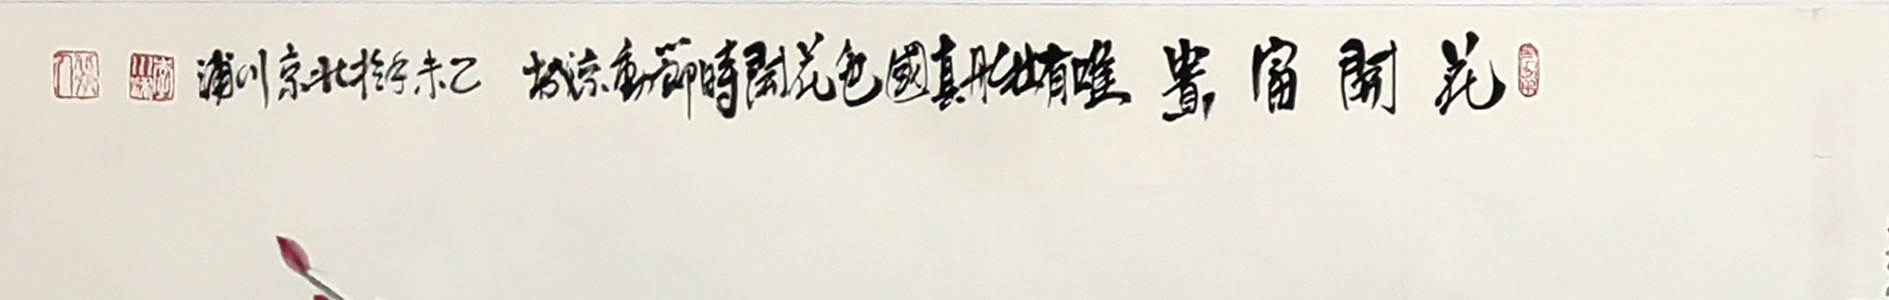 花開富貴 唯有牡丹真國色花開時節動京城 乙未年於北京川浦